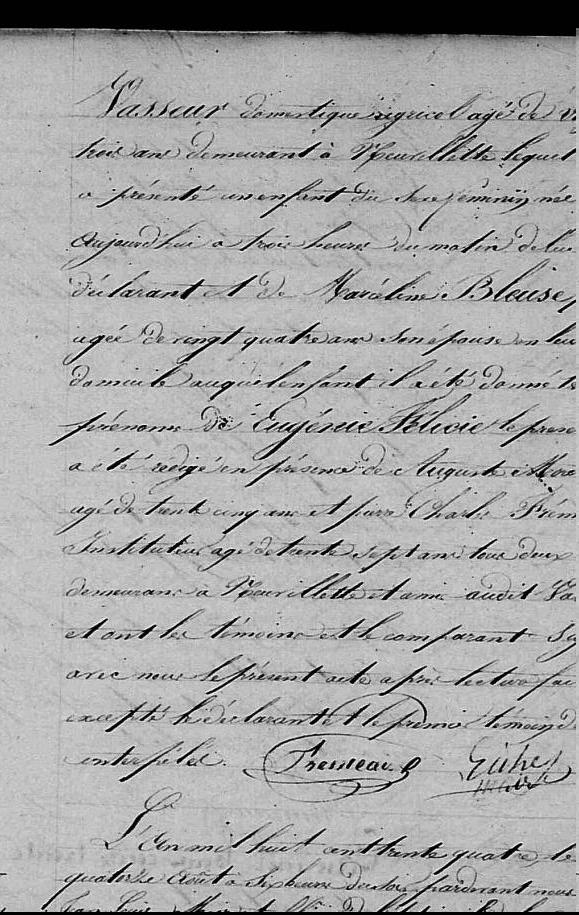 Vasseur domestique agricol agé de v
trois ans demeurant à Neuvillette lequel
a présenté un enfant du sexe feminin née
aujourd'hui a trois heures du matin de lui
déclarant et de Blaise,
agée de vingt quatre ans son épouse en leur
domicile auquel enfant il a été donné le
prénoms de Eugénie Félicie le prese
a été rédigé en présence de Auguste
agé de trente cinq ans et pierre Charles Frém
Instituteur agé de trente sept ans tous deux
demeurans a Neuvillette et amis audit Va
et ont les témoins et le comparant sig
avec nous le présent acte apres lecture fai
excepté le déclarant et le premier témoin d
interpélés. Fremeau
L'An mil huit cent trente quatre le
quatorze août à six heures du soir pardevant nous
Jean Louis